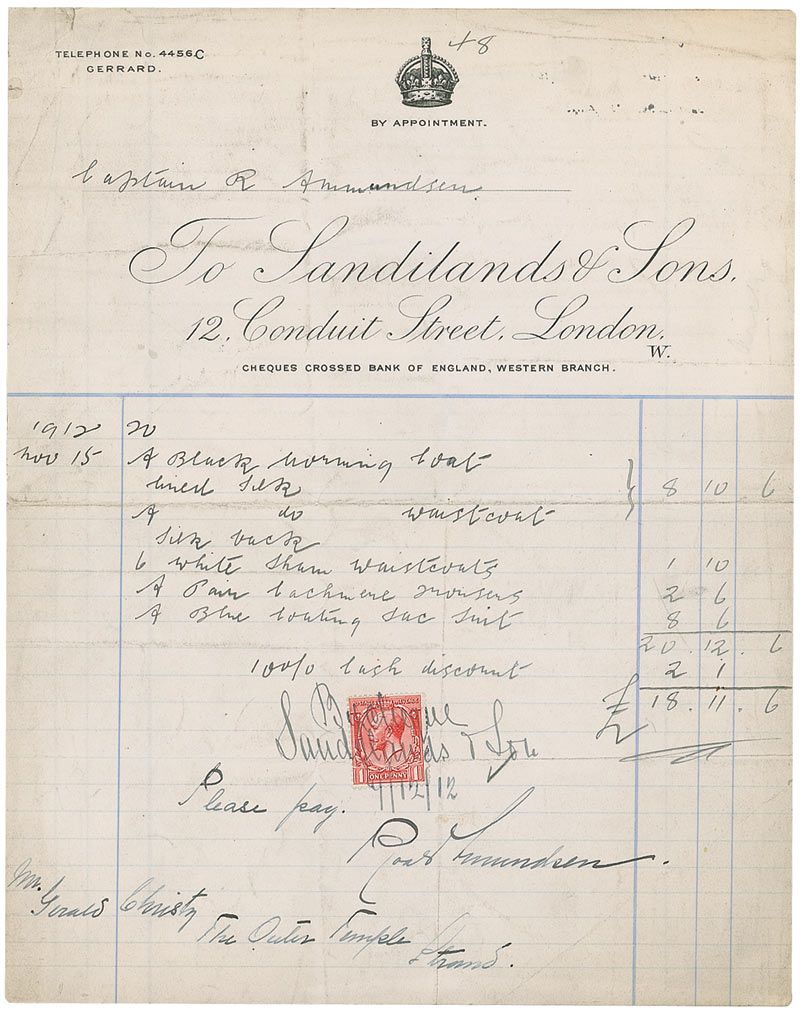 48
TELEPHONE No. 4456C
GERRARD.
BY APPOINTMENT.
Captain R Ammundsen
To Sandilands & Sons,
12, Conduit Street, London,
W.
CHEQUES CROSSED BANK OF ENGLAND, WESTERN BRANCH.
1912
Nov 15 A Black morning Coat
lined Silk 8 10 6
A do waistcoat
Silk back
6 white Sham waistcoats 1 10
A Pair Cachmere Trousers 2 6
A Blue Coating Sac Suit 8 6
20 . 12 . 6
10% Cash discount 2 1
£ 18 . 11 . 6
By cheque
Sandilands & Son
ONE PENNY
1 1
/12/12
Please pay.
Roald Amundsen.
Mr.
Gerald Christy
The Outer Temple
Strand.